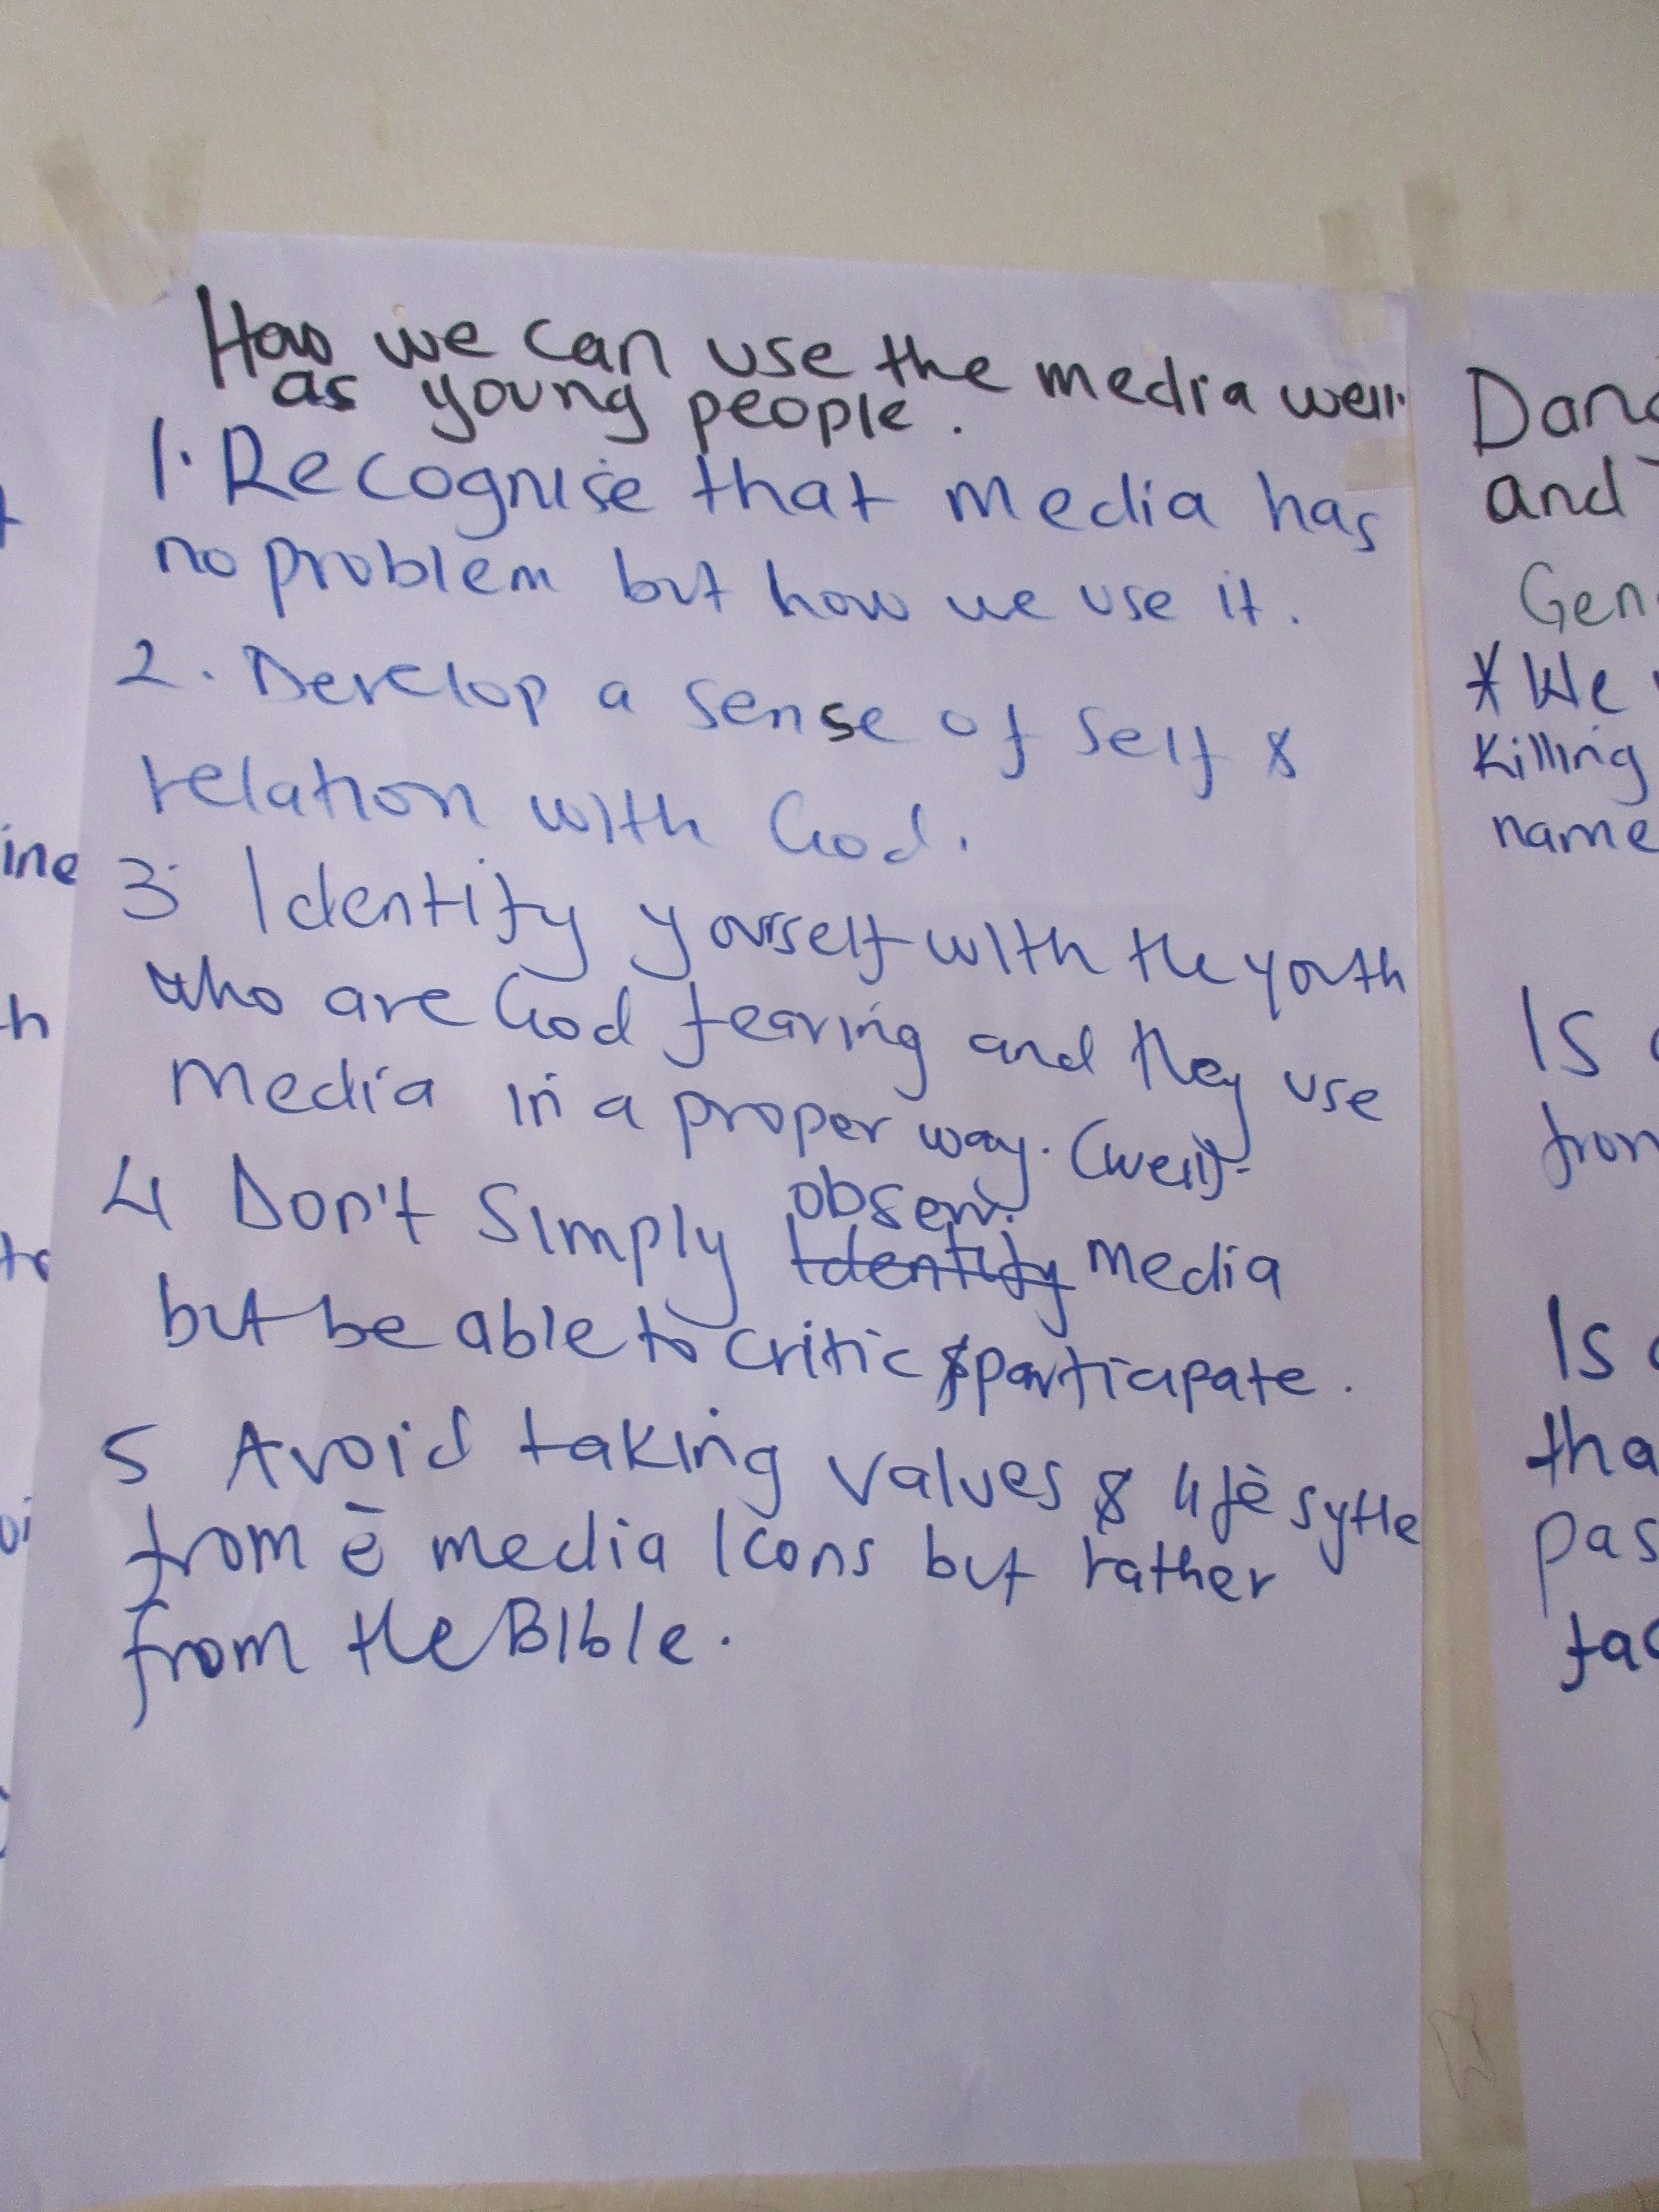 How we can use the media well
as young people.
1. Recognise that media has
no problem but how we use it.
2. Develop a sense of self &
relation with God.
3. Identify yourself with the youth
who are God fearing and they use
media in a proper way. (well).
4 Don't simply observe media
Identify
but be able to critic & participate.
5 Avoid taking values & life sytle
from ē media Icons but rather
from the Bible.
and
Gen
* We
Killing
name
Is
from
Is
tha
pas
ine